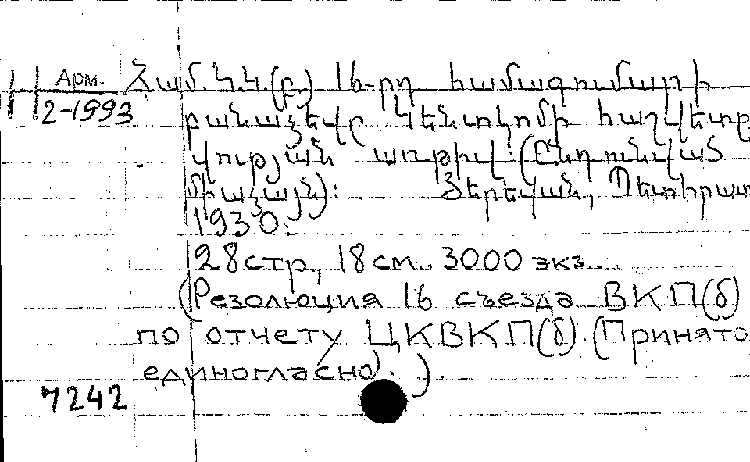 Арм. Համ.Կ.Կ.(բ.) 16-րդ համագումարի
2-1993 բանաձեվը Կենտկոմի հաշվետը
վության առթիվ: (Ընդունված
միաձայն): Յերեվան, Պետհրատ
1930.
28 стр., 18 см. 3000 экз.
(Резолюция 16 съезда ВКП(б)
по отчету ЦКВКП(б). (Принято
единогласно).).
7242